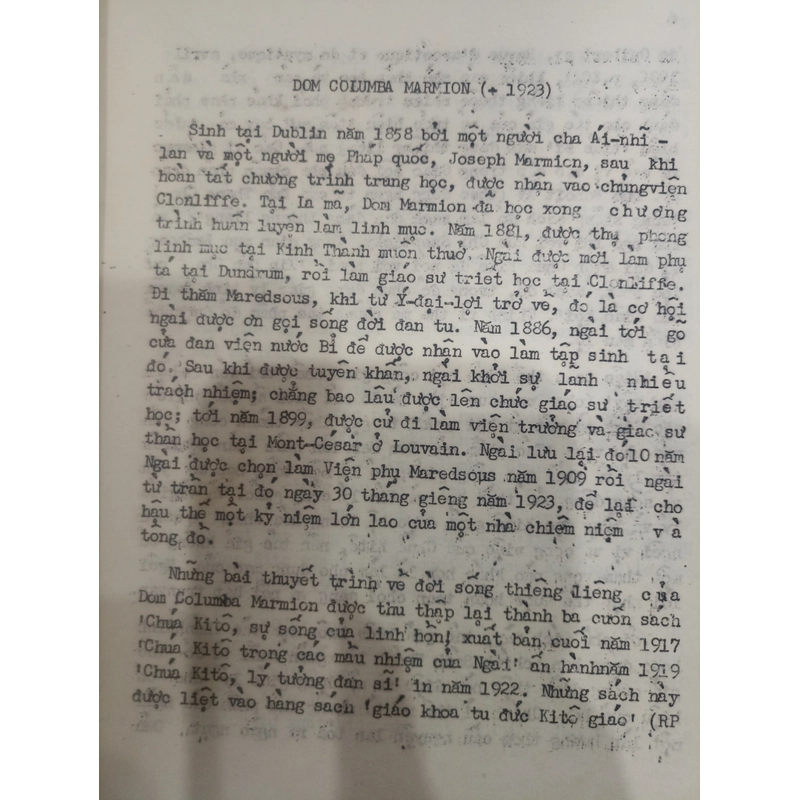 DOM COLUMBA MARMION (+ 1923)
Sinh tại Dublin năm 1858 bởi một người cha Ái-nhĩ -
lan và một người mẹ Pháp quốc, Joseph Marmion, sau khi
hoàn tất chương trình trung học, được nhận vào chủngviện
Clonliffe. Tại La mã, Dom Marmion đã học xong chương
trình huấn luyện làm linh mục. Năm 1881, được thụ phong
linh mục tại Kinh Thành muôn thuở. Ngài được mời làm phụ
tá tại Dundrum, rồi làm giáo sư triết học tại Clonliffe.
Đi thăm Maredsous, khi từ Ý-đại-lợi trở về, đó là cơ hội
ngài được ơn gọi sống đời đan tu. Năm 1886, ngài tới gõ
cửa đan viện nước Bỉ để được nhận vào làm tập sinh tại
đó. Sau khi được tuyên khấn, ngài khởi sự lãnh nhiều
trách nhiệm; chẳng bao lâu được lên chức giáo sư triết
học; tới năm 1899, được cử đi làm viện trưởng và giáo sư
thần học tại Mont-César ở Louvain. Ngài lưu lại đó 10 năm
Ngài được chọn làm Viện phụ Maredsous năm 1909 rồi ngài
từ trần tại đó ngày 30 tháng giêng năm 1923, để lại cho
hậu thế một kỷ niệm lớn lao của một nhà chiêm niệm và
tông đồ.
Những bài thuyết trình về đời sống thiêng liêng của
Dom Columba Marmion được thu thập lại thành ba cuốn sách
'Chúa Kitô, sự sống của linh hồn' xuất bản cuối năm 1917
'Chúa Kitô trong các mầu nhiệm của Ngài' ấn hànhnăm 1919
'Chúa Kitô, lý tưởng đan sĩ' in năm 1922. Những sách này
được liệt vào hàng sách 'giáo khoa tu đức Kitô giáo' (RP